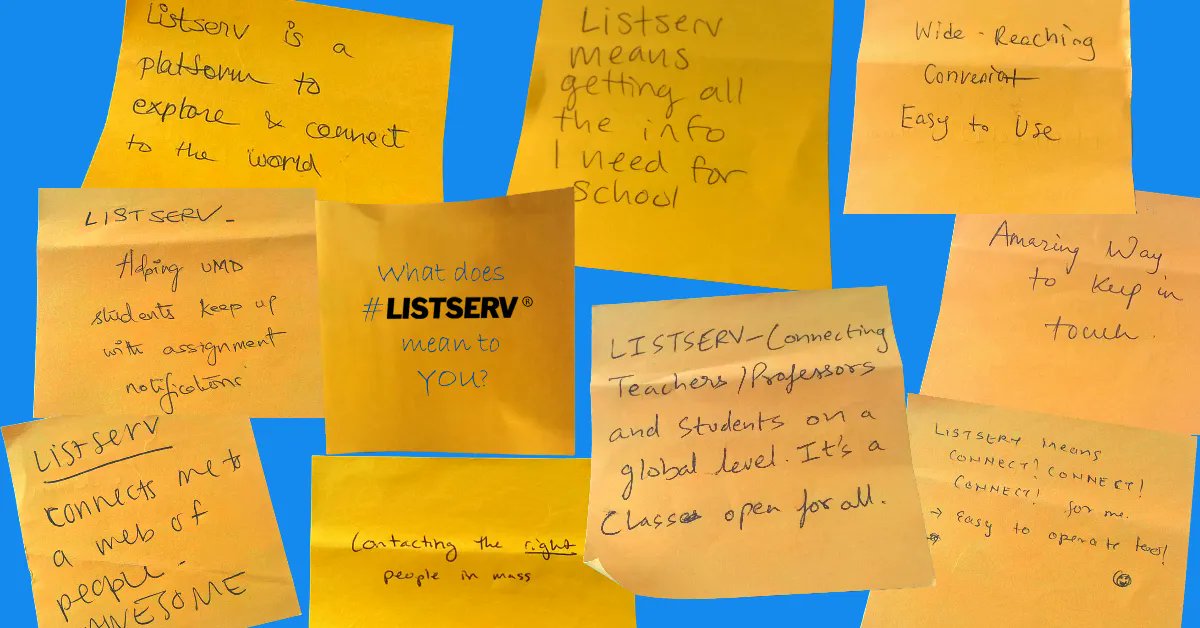 Listserv is a
platform to
explore & connect
to the world
Listserv
means
getting all
the info
I need for
school
Wide - Reaching
Convenient
Easy to Use
LISTSERV -
Helping UMD
students keep up
with assignment
notifications
What does
#LISTSERV®
mean to
YOU?
LISTSERV - Connecting
Teachers / Professors
and Students on a
global level. It's a
Class open for all.
Amazing Way
to Keep in
touch.
Listserv
connects me to
a web of
people.
AWESOME
Contacting the right
people in mass
LISTSERV means
CONNECT! CONNECT!
CONNECT! for me.
→ Easy to operate too!